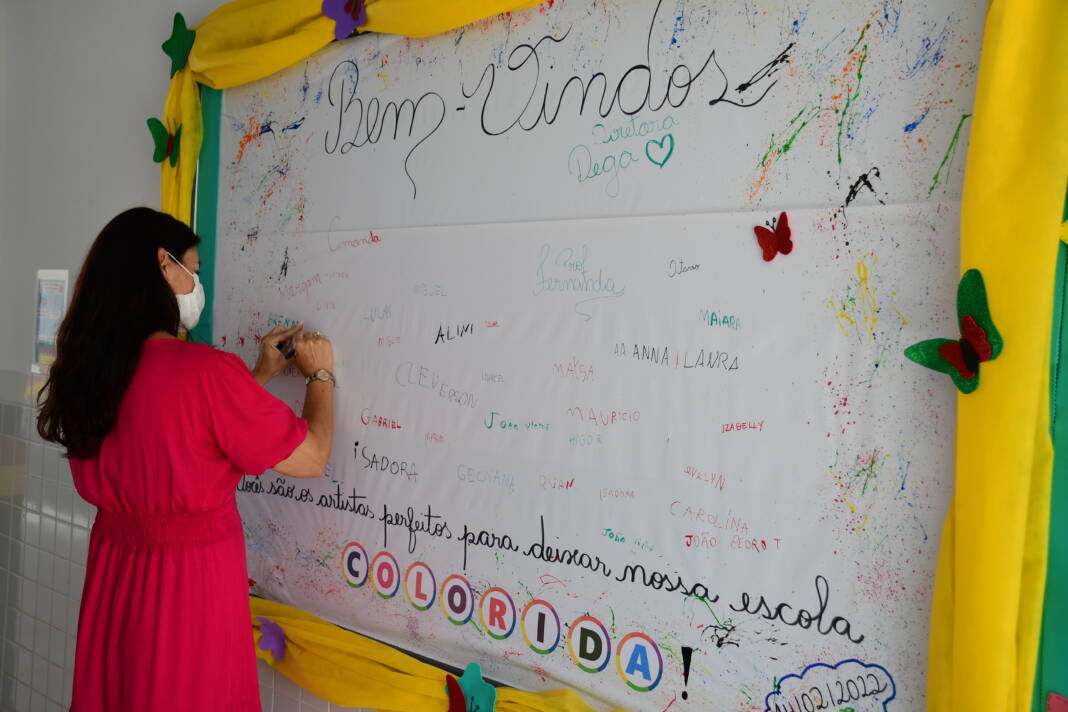 Bem-Vindos
Diretora
Dega
Amanda
Prof
Fernanda
Otavio
Miguel
LUCAS
ALINI
MAIARA
ANNA LAURA
MAYSA
CLEVERSON
GABRIEL
MAURICIO
HIGOR
IZABELLY
iSADORA
GEOVANA
RUAN
ISADORA
EVELYN
CAROLINA
JOÃO
JOÃO PEDRO T
Vocês são os artistas perfeitos para deixar nossa escola
COLORIDA!
14/02/2022